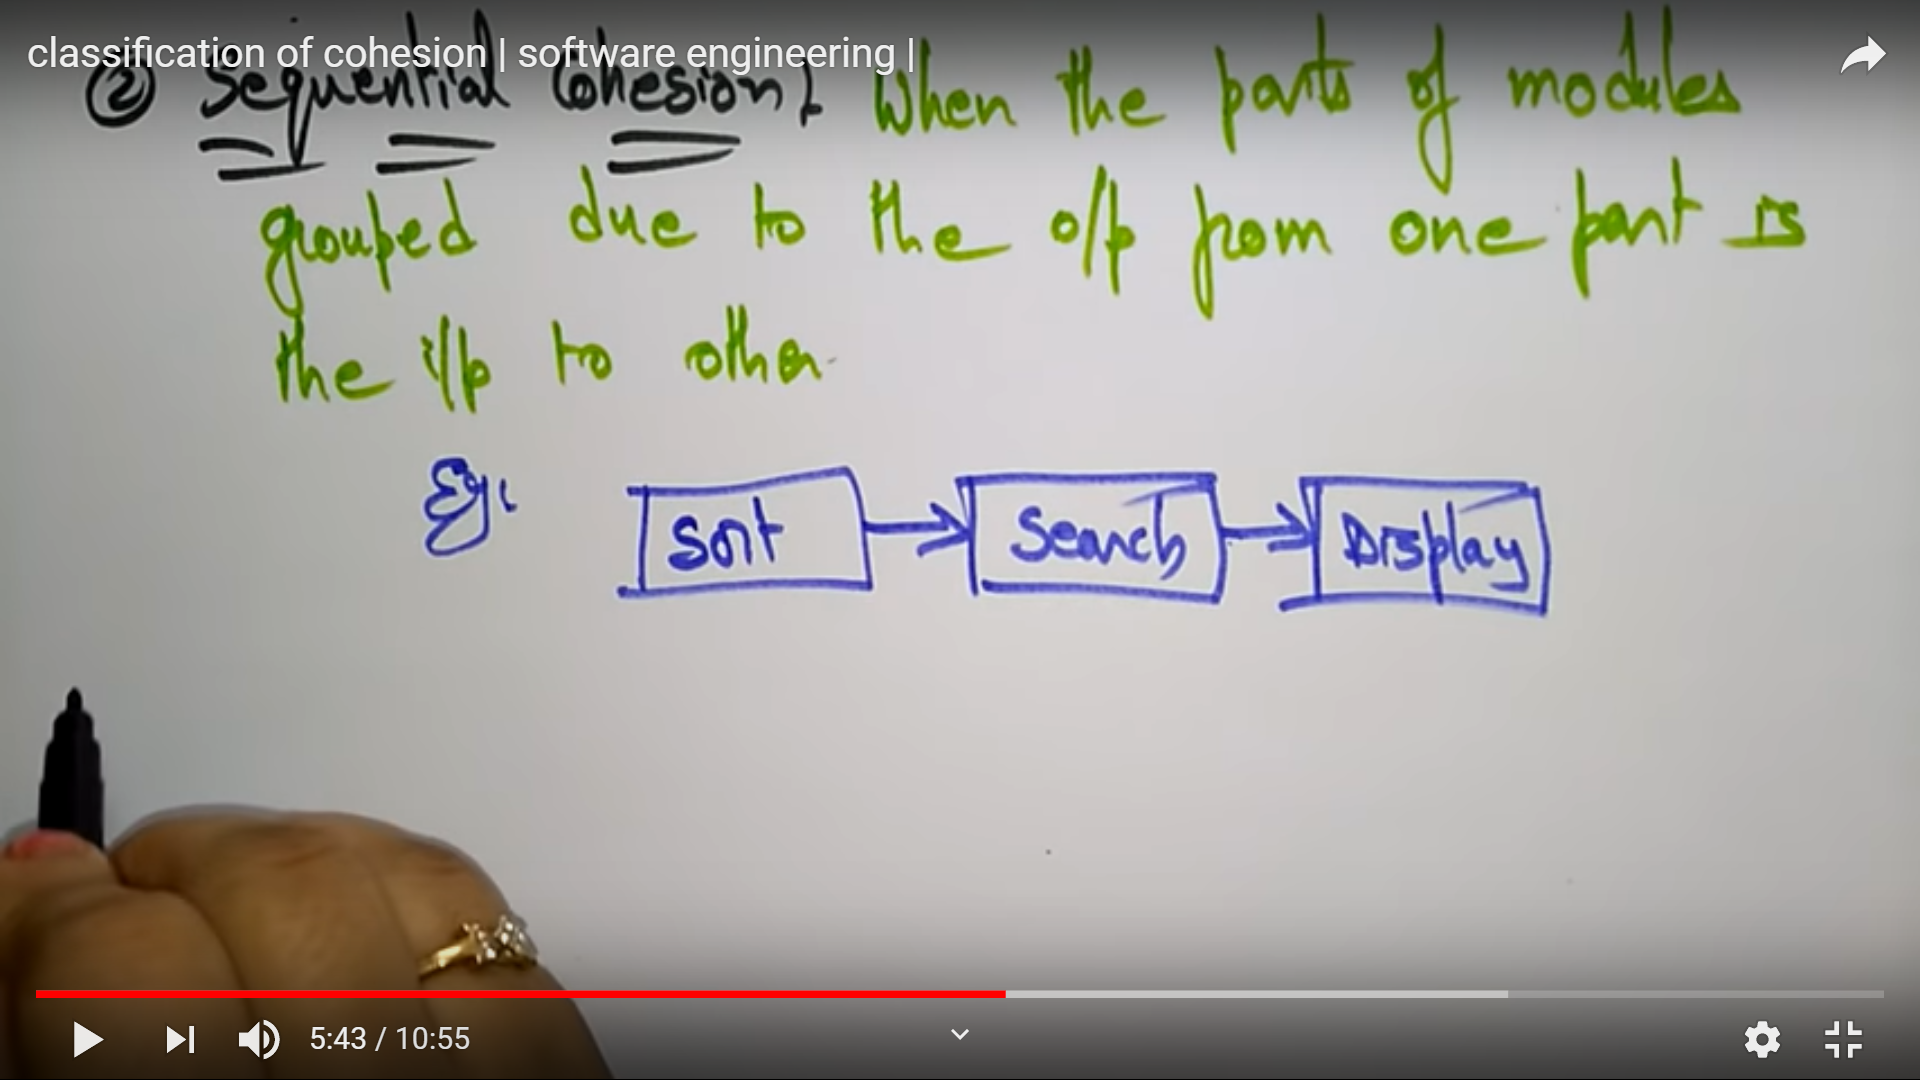 classification of cohesion | software engineering |
② Sequential Cohesion:  When the parts of modules
grouped due to the o/p from one part is
the i/p to other.
Eg:
Sort
Search
Display
5:43 / 10:55